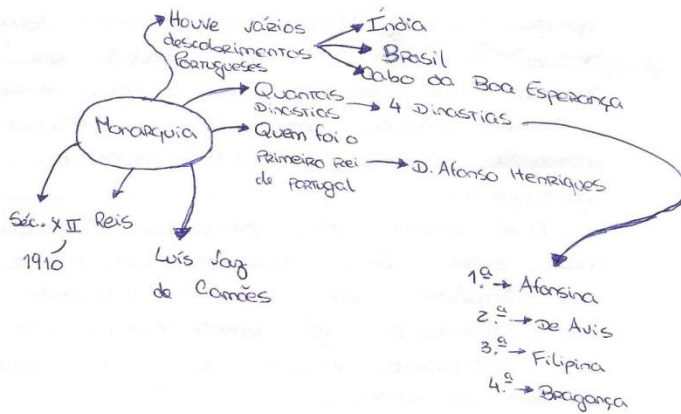 Houve vários
descobrimentos
Portugueses
Índia
Brasil
Cabo da Boa Esperança
Quantas
Dinastias
4 Dinastias
Monarquia
Quem foi o
Primeiro Rei
de Portugal
D. Afonso Henriques
Séc. XII
1910
Reis
Luís Vaz
de Camões
1.ª → Afonsina
2.ª → De Avis
3.ª → Filipina
4.ª → Bragança